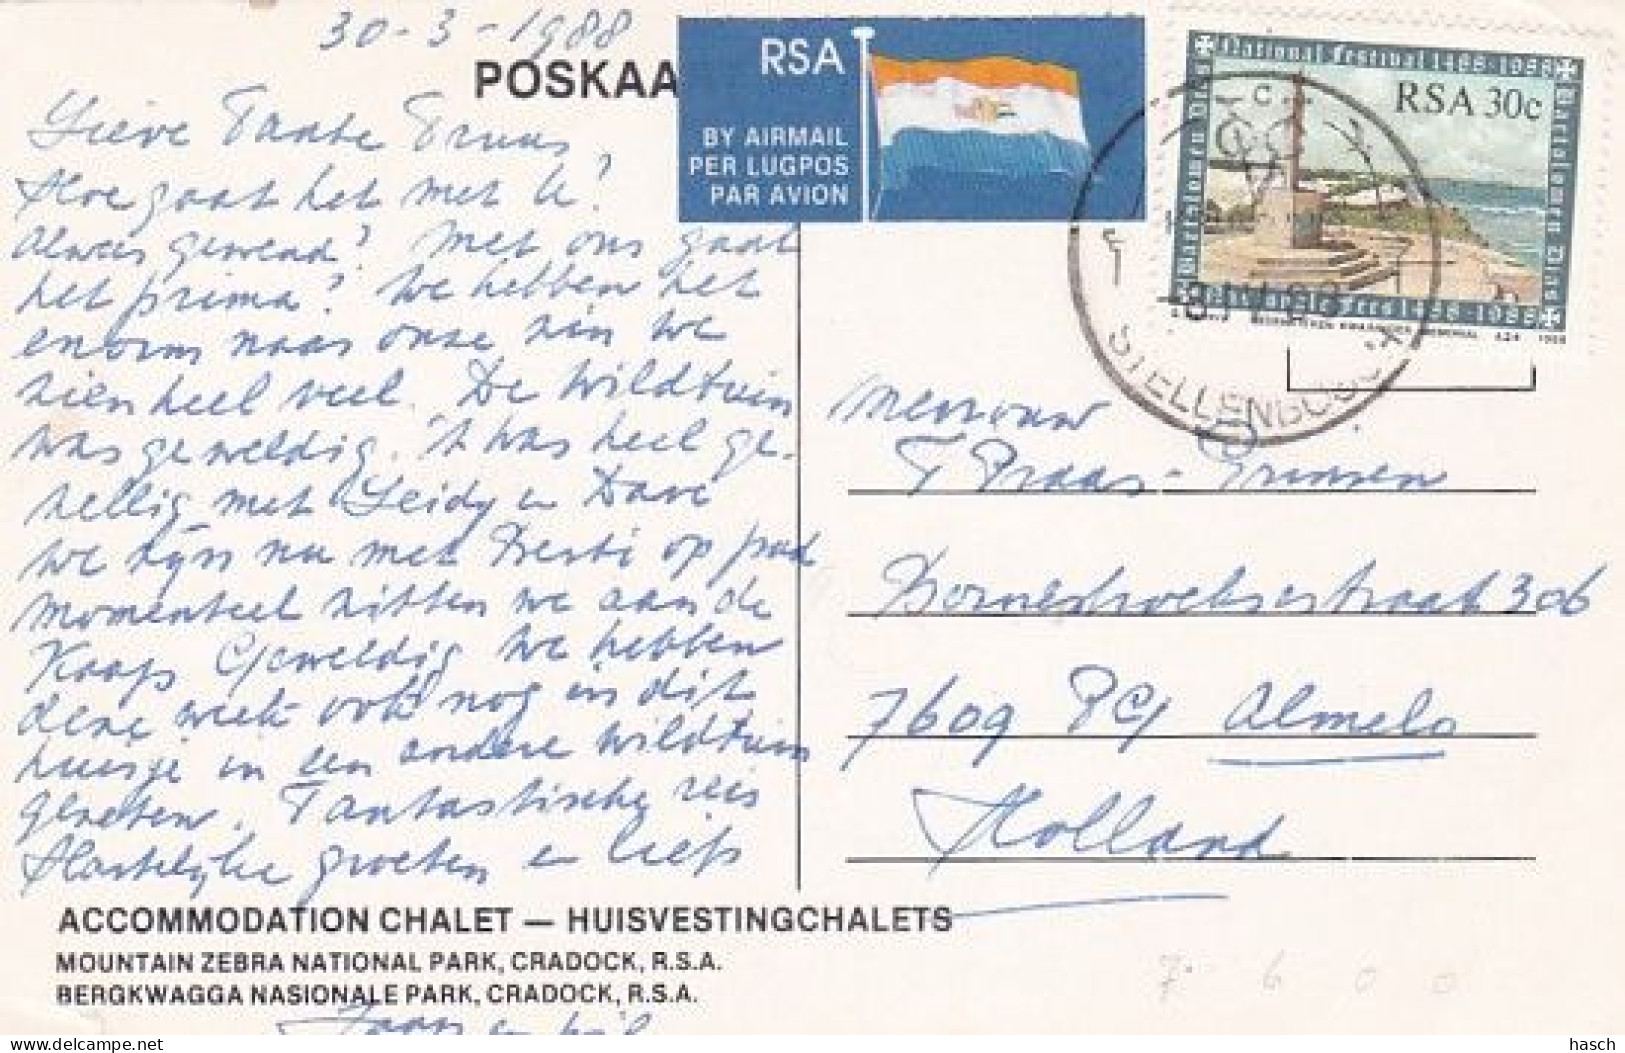 30-3-1988
POSKAA
RSA
BY AIRMAIL
PER LUGPOS
PAR AVION
National Festival 1488-1988
Bartolomeu Dias
Bartolomeu Dias
RSA 30c
Nasionale Fees 1488-1988
STELLENBOSCH
Lieve Tante Truus
Hoe gaat het met U?
Alles gewend? Met ons gaat
het prima! We hebben het
enorm naar onze zin we
zien heel veel. De Wildtuin
was geweldig. 't was heel ge-
zellig met Leidy en Dave
we zijn nu met op pad
momenteel zitten we aan de
Kaap Geweldig We hebben
deze week ook nog in dit
huisje in een andere wildtuin
gezeten. Fantastische reis
Hartelijke groeten en liefs
Mevrouw
T Praas-
306
7609 PG Almelo
Holland
ACCOMMODATION CHALET — HUISVESTINGCHALETS
MOUNTAIN ZEBRA NATIONAL PARK, CRADOCK, R.S.A.
BERGKWAGGA NASIONALE PARK, CRADOCK, R.S.A.
7 6 0 0
hasch